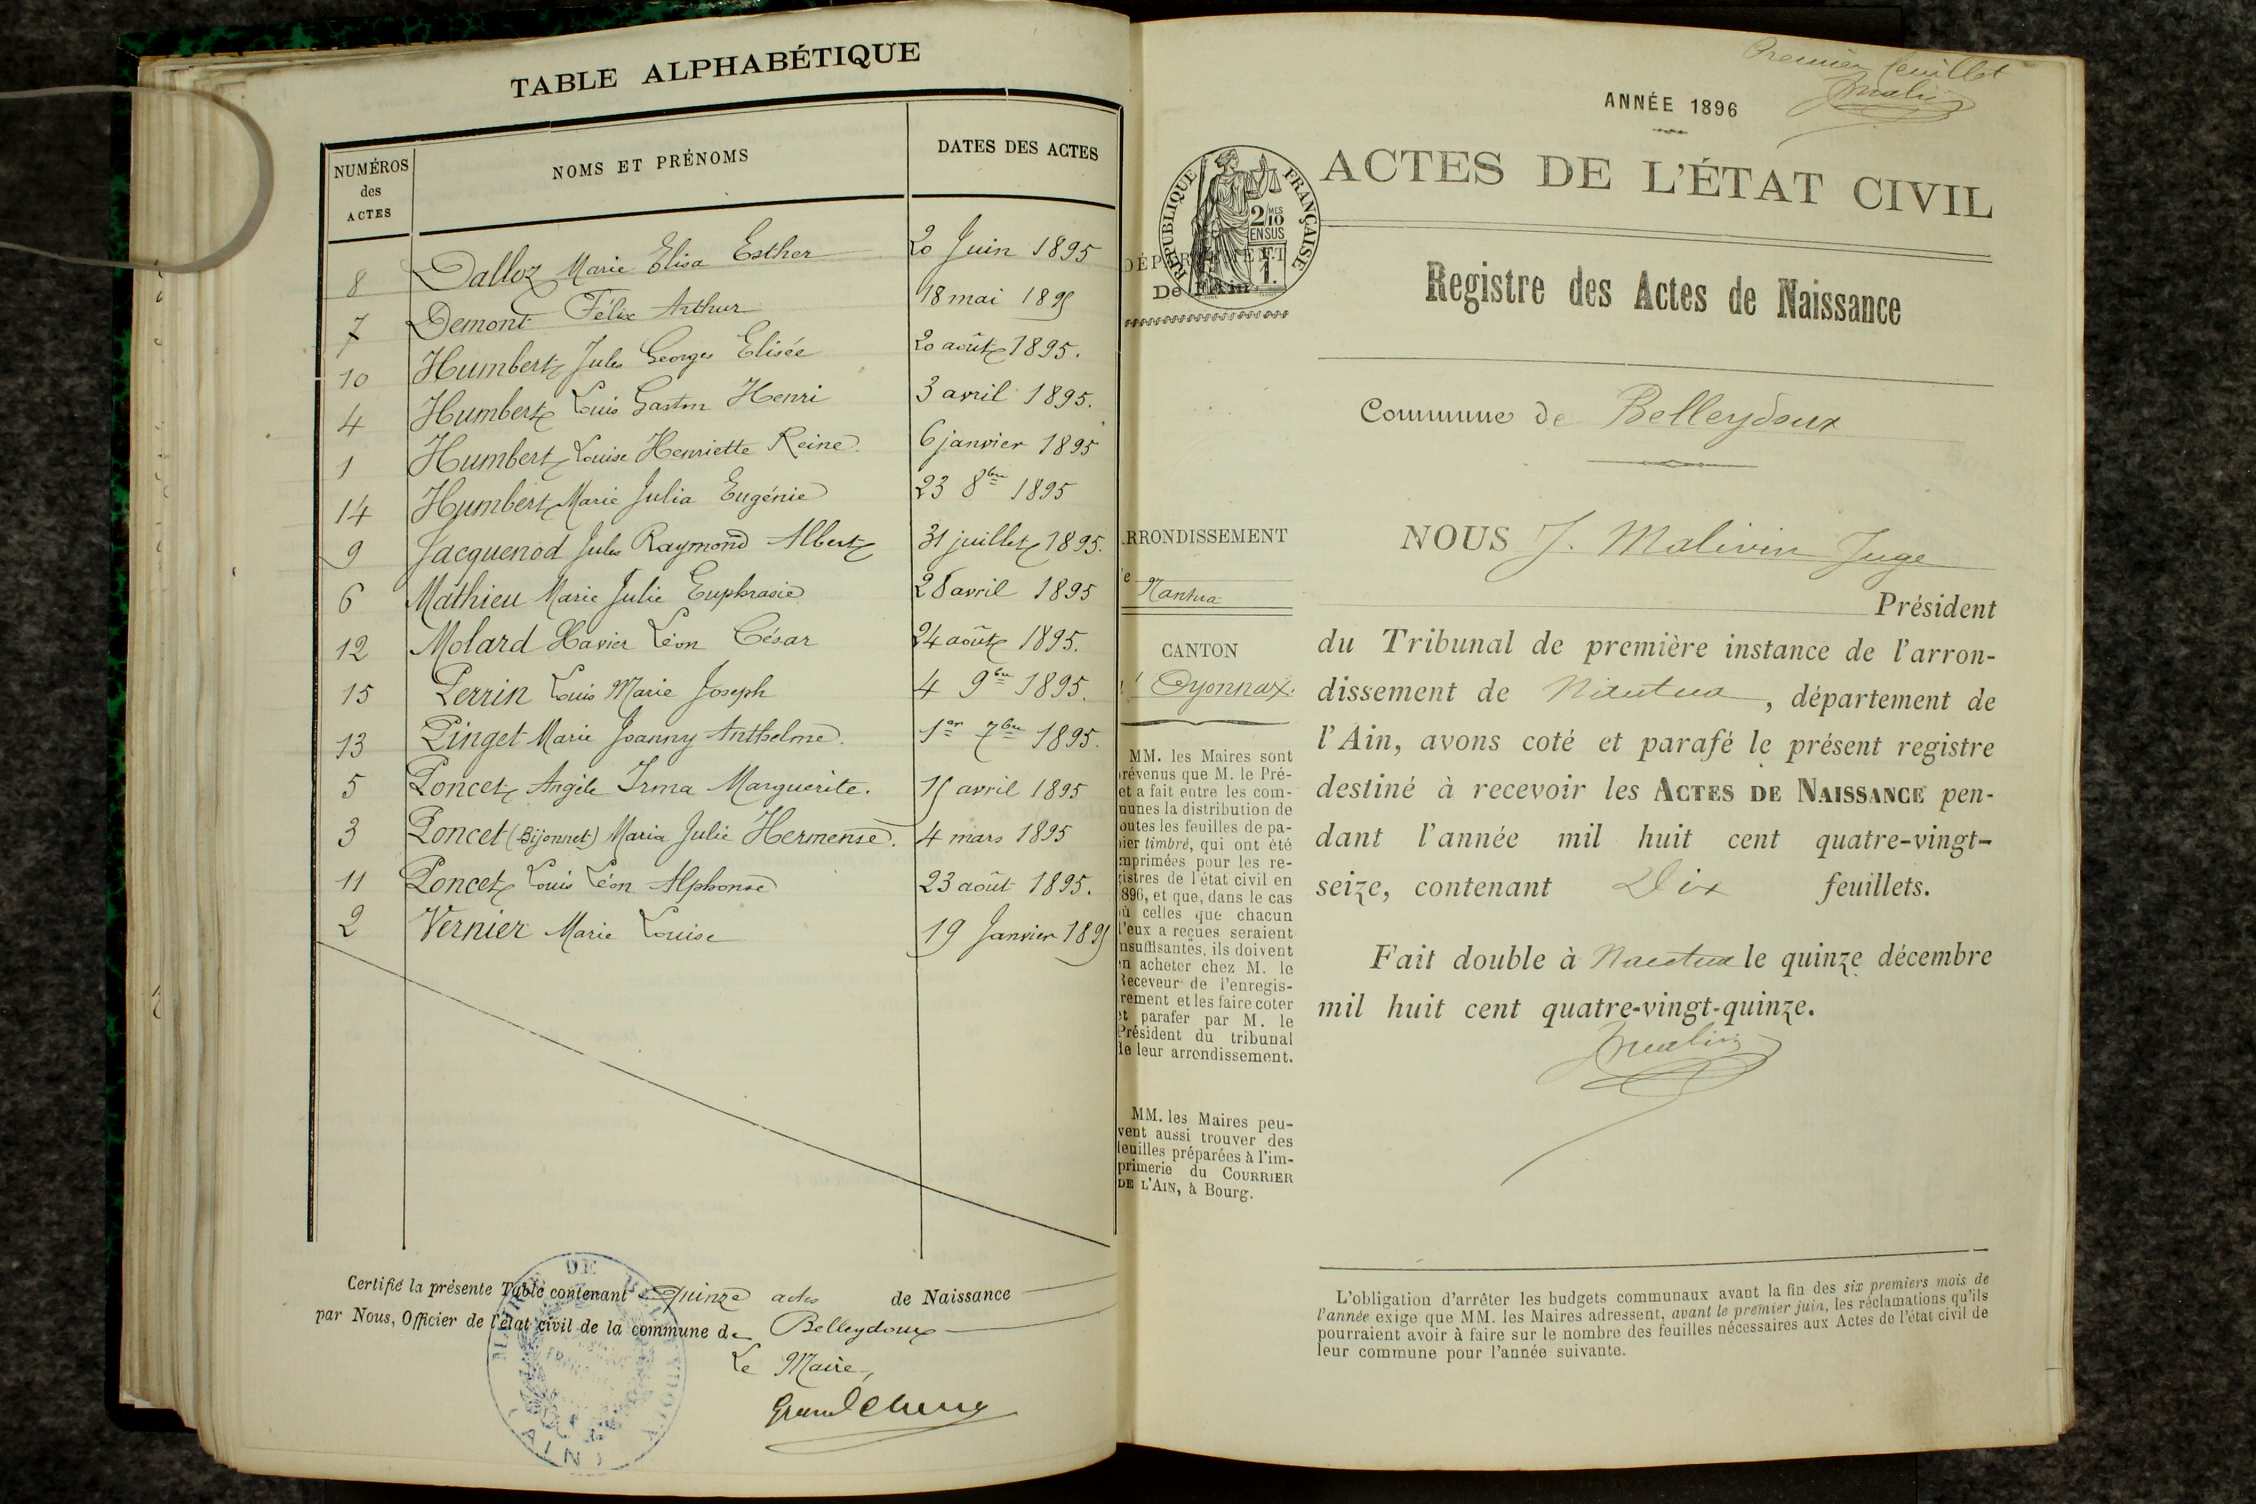 TABLE ALPHABÉTIQUE
NUMÉROS
des
ACTES
NOMS ET PRÉNOMS
DATES DES ACTES
8 Dalloz Marie Elisa Esther 20 Juin 1895
7 Demont Félix Arthur 18 mai 1895
10 Humbert Jules Georges Elisée 20 août 1895.
4 Humbert Louis Gaston Henri 3 avril 1895.
1 Humbert Louise Henriette Reine 6 janvier 1895
14 Humbert Marie Julia Eugénie 23 8bre 1895
9 Jacquenod Jules Raymond Albert 31 juillet 1895.
6 Mathieu Marie Julie Euphrasie 28 avril 1895
12 Molard Xavier Léon César 24 août 1895.
15 Perrin Louis Marie Joseph 4 9bre 1895.
13 Pinget Marie Joanny Anthelme. 1er 7bre 1895.
5 Poncet Angèle Irma Marguerite. 15 avril 1895
3 Poncet (Bijonnet) Maria Julie Hermense. 4 mars 1895
11 Poncet Louis Léon Alphonse 23 août 1895.
2 Vernier Marie Louise 19 Janvier 1895
Certifié la présente Table contenant Quinze actes de Naissance
par Nous, Officier de l'état civil de la commune de Belleydoux
Le Maire,
MAIRIE DE BELLEYDOUX
(AIN)
Premier feuillet
ANNÉE 1896
RÉPUBLIQUE FRANÇAISE
2/10 MES
EN SUS
1.
ACTES DE L'ÉTAT CIVIL
DÉPARTEMENT
De l'Ain
Registre des Actes de Naissance
Commune de Belleydoux
RRONDISSEMENT
e Nantua
CANTON
d' Oyonnax.
MM. les Maires sont
révenus que M. le Pré-
et a fait entre les com-
munes la distribution de
outes les feuilles de pa-
pier timbré, qui ont été
mprimées pour les re-
gistres de l'état civil en
896, et que, dans le cas
où celles que chacun
l'eux a reçues seraient
nsuffisantes, ils doivent
en acheter chez M. le
Receveur de l'enregis-
rement et les faire coter
et parafer par M. le
Président du tribunal
de leur arrondissement.
MM. les Maires peu-
vent aussi trouver des
feuilles préparées à l'im-
primerie du COURRIER
DE L'AIN, à Bourg.
NOUS J. Malivin Juge
Président
du Tribunal de première instance de l'arron-
dissement de Nantua, département de
l'Ain, avons coté et parafé le présent registre
destiné à recevoir les ACTES DE NAISSANCE pen-
dant l'année mil huit cent quatre-vingt-
seize, contenant Dix feuillets.
Fait double à Nantua le quinze décembre
mil huit cent quatre-vingt-quinze.
L'obligation d'arrêter les budgets communaux avant la fin des six premiers mois de
l'année exige que MM. les Maires adressent, avant le premier juin, les réclamations qu'ils
pourraient avoir à faire sur le nombre des feuilles nécessaires aux Actes de l'état civil de
leur commune pour l'année suivante.